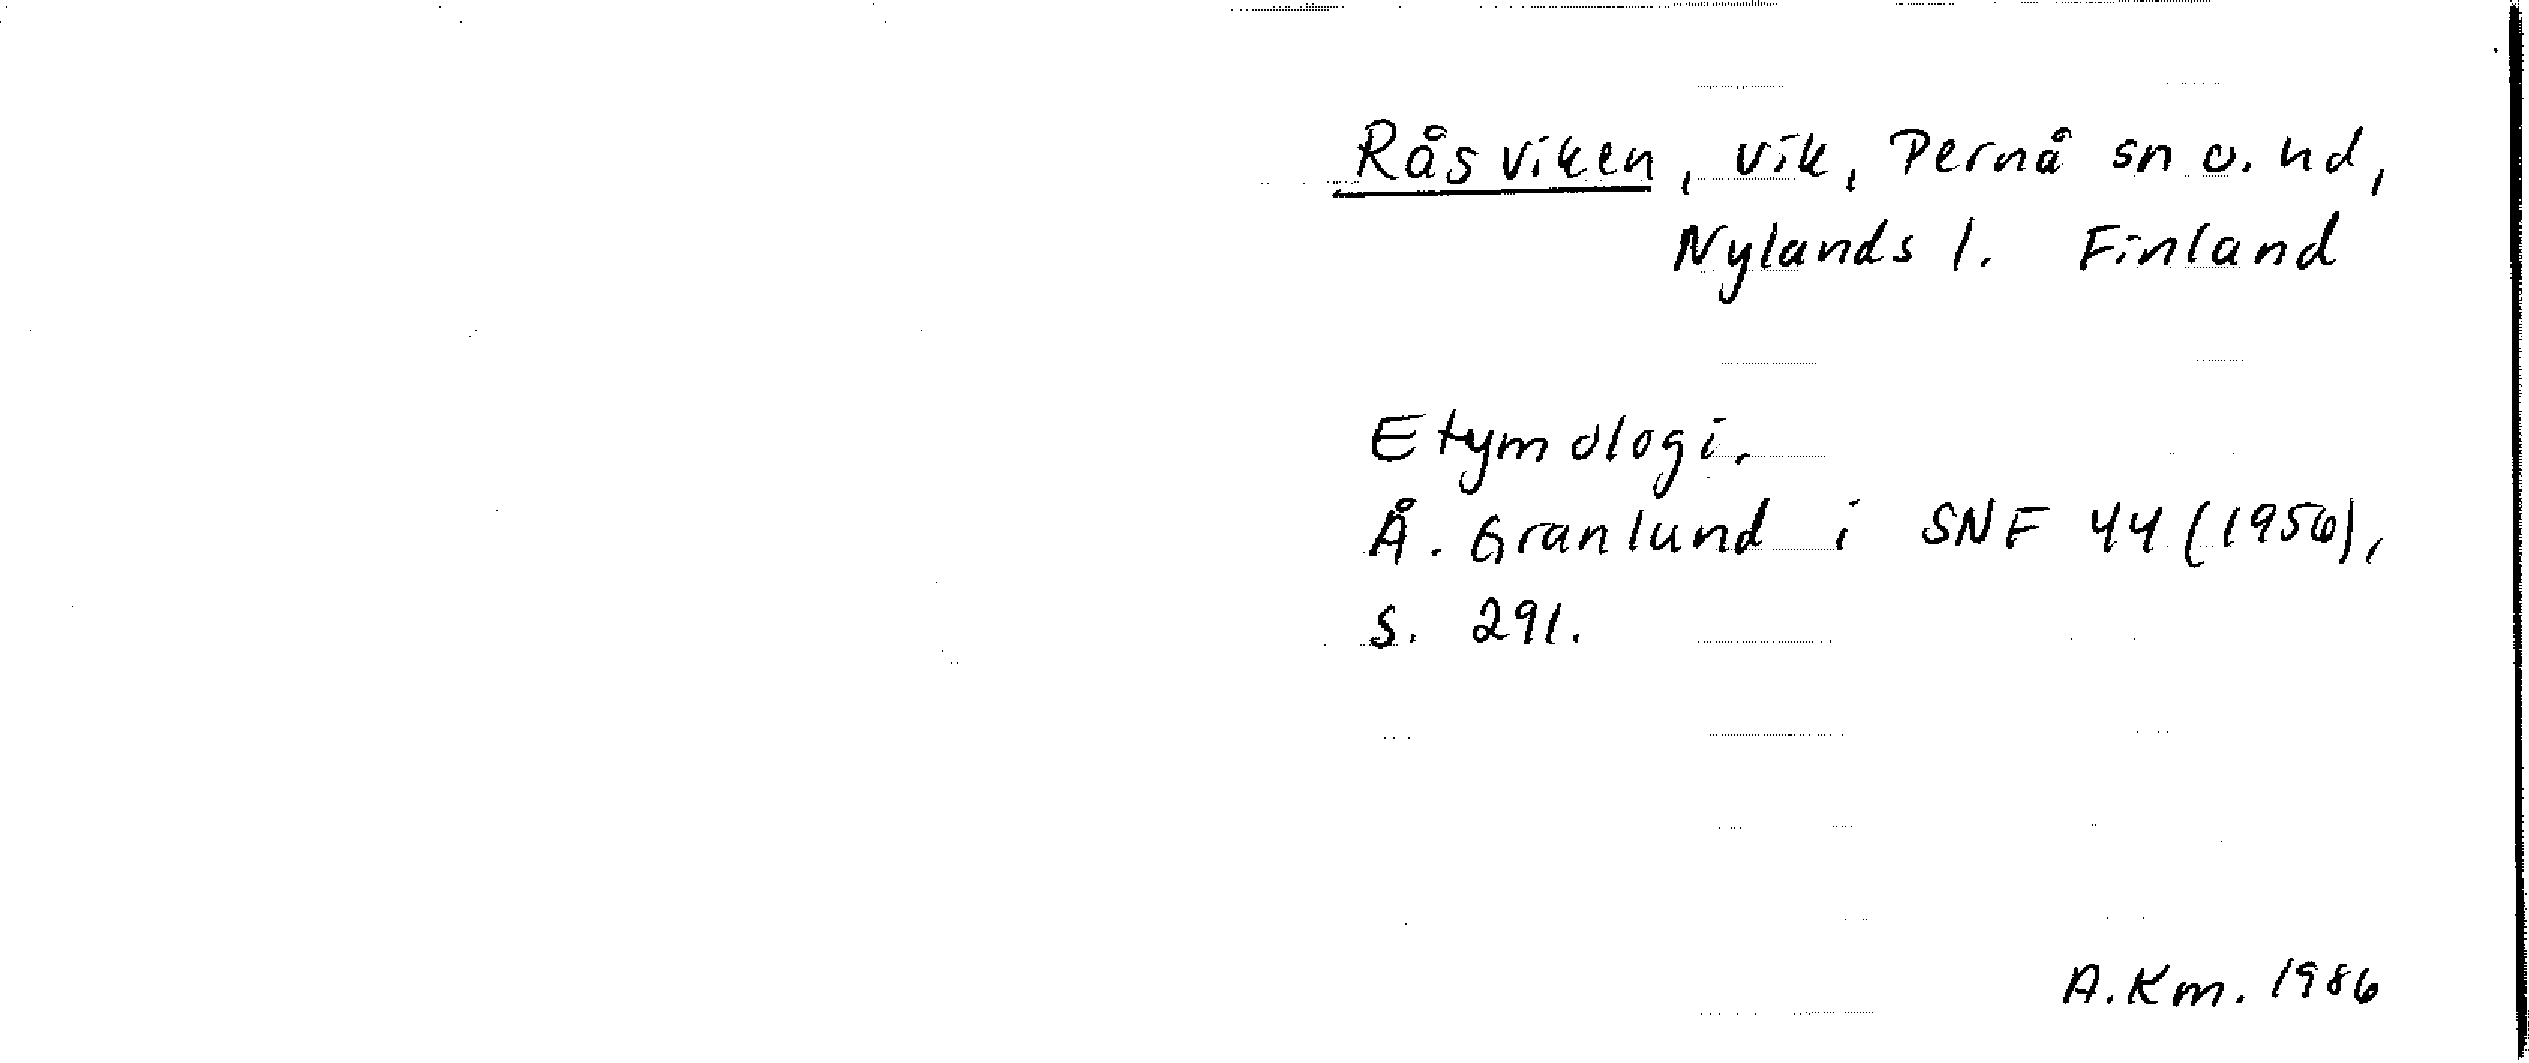 Råsviken, vik, Pernå sn o. hd,
Nylands l. Finland
Etymologi.
Å. Granlund i SNF 44 (1956),
s. 291.
A.Km. 1986